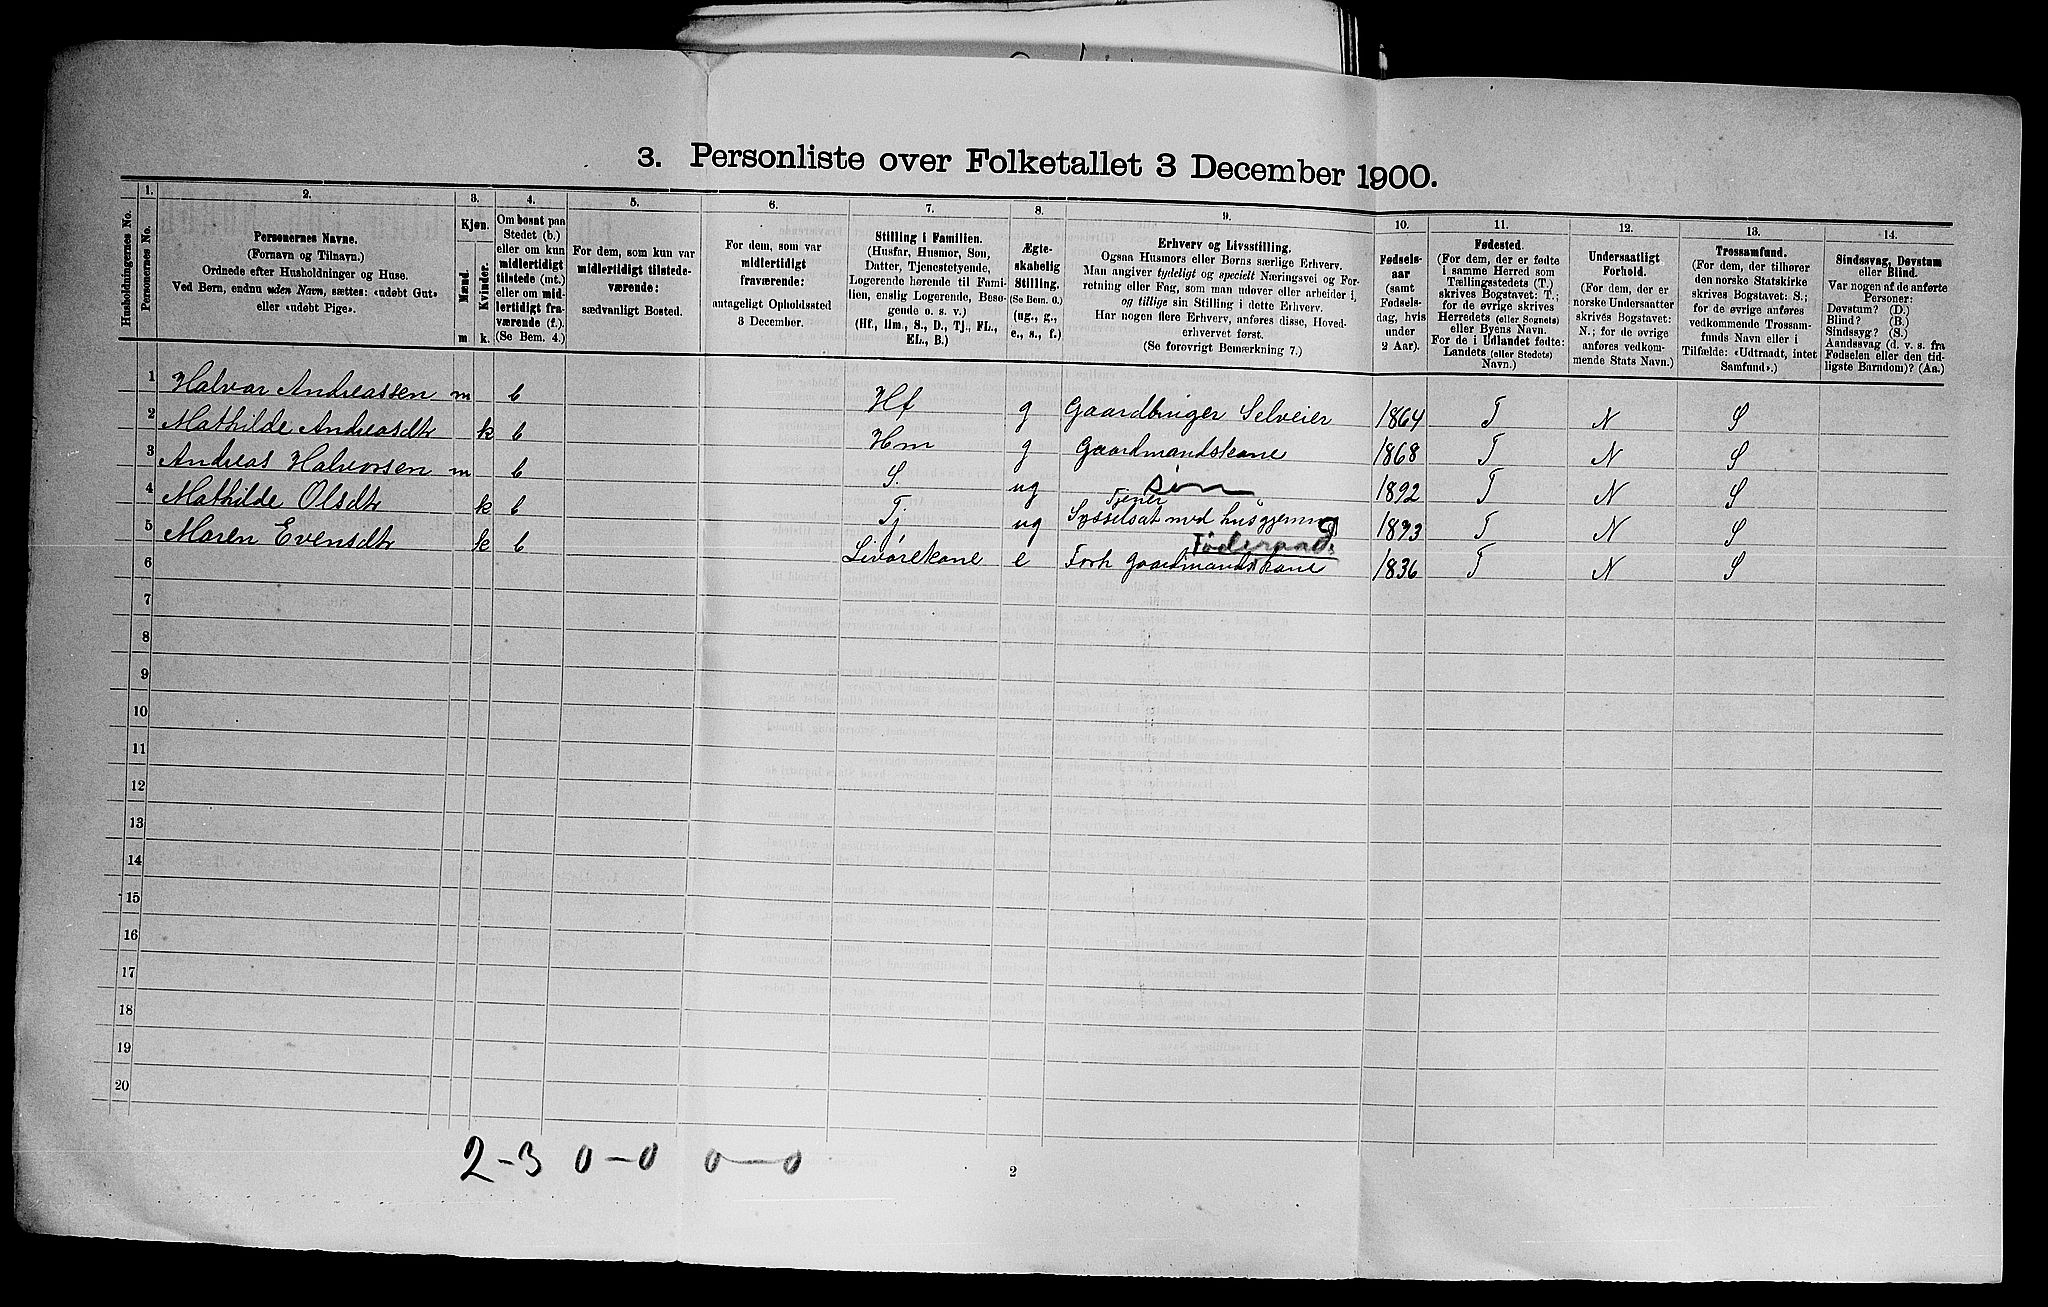 3. Personliste over Folketallet 3 December 1900.
Husholdningernes No.
1.
Personernes No.
2.
Personernes Navne.
(Fornavn og Tilnavn.)
Ordnede efter Husholdninger og Huse.
Ved Børn, endnu uden Navn, sættes: «udøbt Gut»
eller «udøbt Pige».
3.
Kjøn.
Mænd.
Kvinder.
m
k.
4.
Om bosat paa
Stedet (b.)
eller om kun
midlertidigt
tilstede (mt.)
eller om mid-
lertidigt fra-
værende (f.).
(Se Bem. 4.)
5.
For dem, som kun var
midlertidigt tilstede-
værende:
sædvanligt Bosted.
6.
For dem, som var
midlertidigt
fraværende:
antageligt Opholdssted
3 December.
7.
Stilling i Familien.
(Husfar, Husmor, Søn,
Datter, Tjenestetyende,
Logerende hørende til Fami-
lien, enslig Logerende, Besø-
gende o. s. v.)
(Hf., Hm., S., D., Tj., FL.,
EL., B.)
8.
Ægte-
skabelig
Stilling.
(Se Bem. 6.)
(ug., g.,
e., s., f.)
9.
Erhverv og Livsstilling.
Ogsaa Husmors eller Børns særlige Erhverv.
Man angiver tydeligt og specielt Næringsvei og For-
retning eller Fag, som man udøver eller arbeider i,
og tillige sin Stilling i dette Erhverv.
Har nogen flere Erhverv, anføres disse, Hoved-
erhvervet først.
(Se forøvrigt Bemærkning 7.)
10.
Fødsels-
aar
(samt
Fødsels-
dag, hvis
under
2 Aar).
11.
Fødested.
(For dem, der er fødte
i samme Herred som
Tællingsstedets (T.)
skrives Bogstavet: T.;
for de øvrige skrives
Herredets (eller Sognets)
eller Byens Navn.
For de i Udlandet fødte:
Landets (eller Stedets)
Navn.)
12.
Undersaatligt
Forhold.
(For dem, der er
norske Undersaatter
skrives Bogstavet:
N.; for de øvrige
anføres vedkom-
mende Stats Navn.)
13.
Trossamfund.
(For dem, der tilhører
den norske Statskirke
skrives Bogstavet: S.;
for de øvrige anføres
vedkommende Trossam-
funds Navn eller i
Tilfælde: «Udtraadt, intet
Samfund».)
14.
Sindssvag, Døvstum
eller Blind.
Var nogen af de anførte
Personer:
Døvstum? (D.)
Blind? (B.)
Sindssyg? (S.)
Aandssvag (d. v. s. fra
Fødselen eller den tid-
ligste Barndom)? (Aa.)
1 Halvar Andreassen m b Hf g Gaardbruger Selveier 1864 T N S
2 Mathilde Andreasdtr k b Hm g Gaardmandskone 1868 T N S
3 Andreas Halvorsen m b S. ug Søn 1892 T N S
4 Mathilde Olsdtr k b Tj ug Tjener
Sysselsat med husgjerning T N S
5 Maren Evensdtr k b Livørekone e Føderaads
Forh gaardmandskone 1836 T N S
6
7
8
9
10
11
12
13
14
15
16
17
18
19
20
2-3 0-0 0-0
2